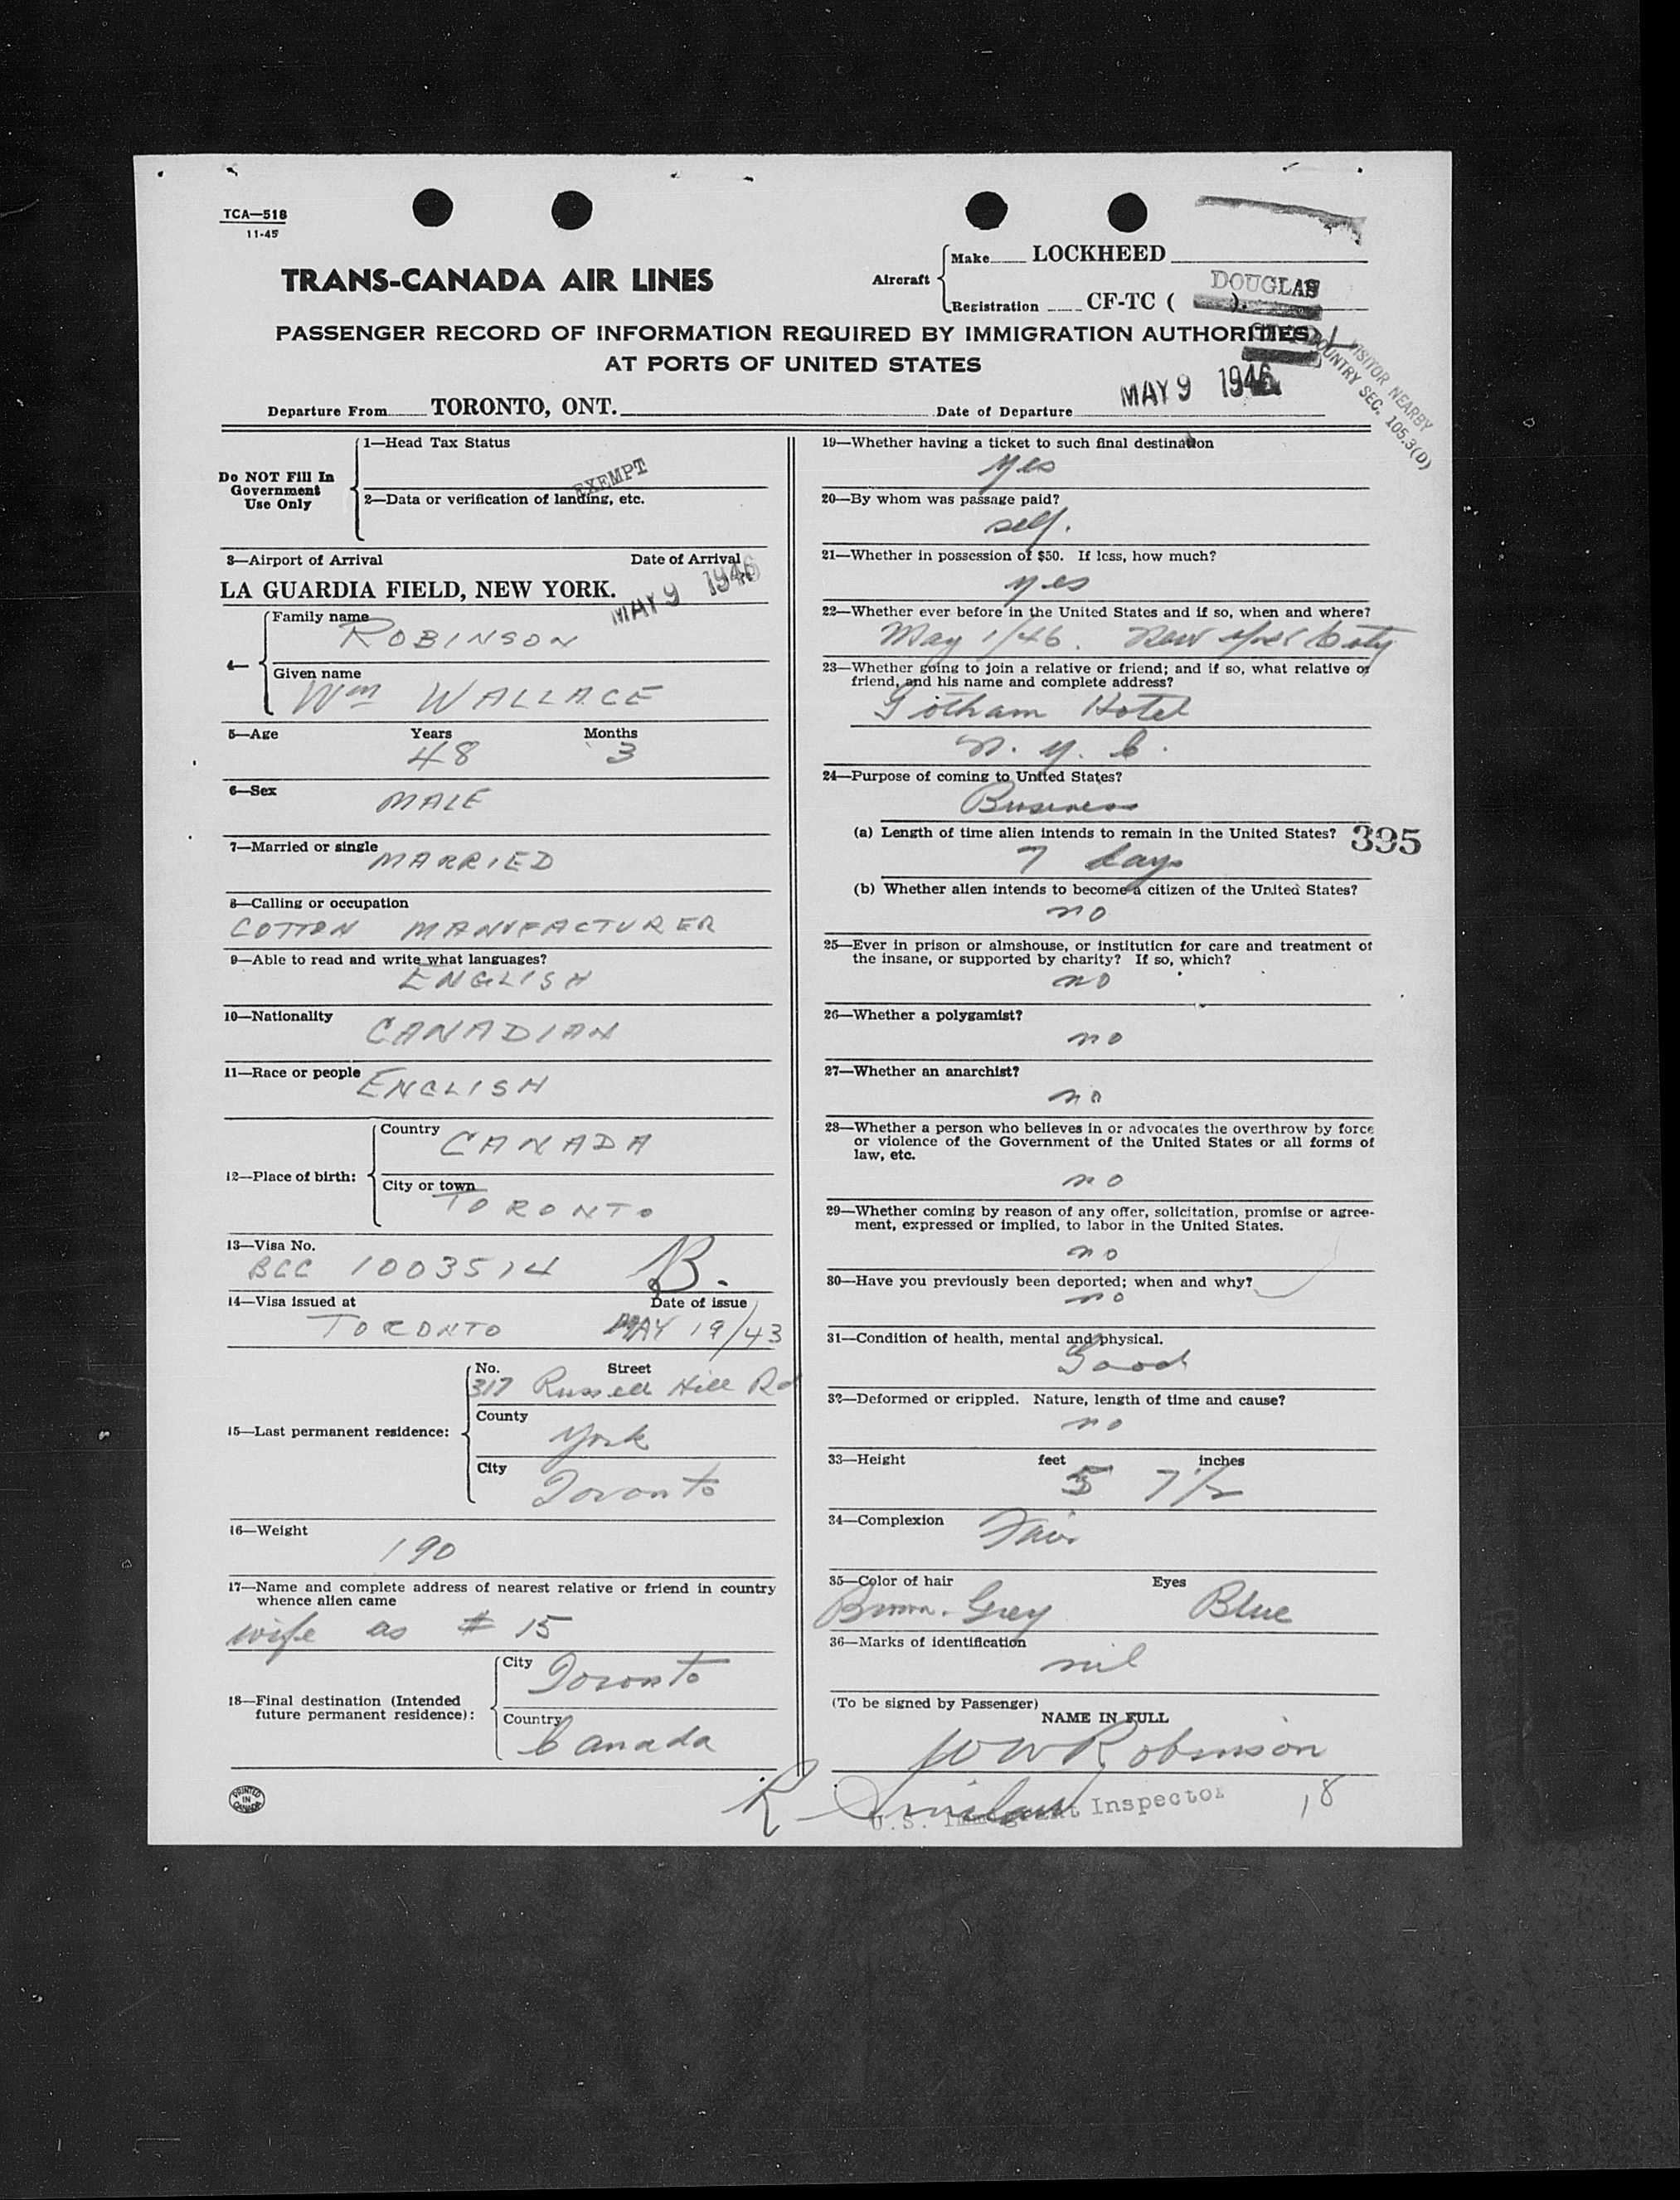 TCA—518
11-45
TRANS-CANADA AIR LINES
Aircraft
Make LOCKHEED
DOUGLAS
Registration CF-TC ( ).
PASSENGER RECORD OF INFORMATION REQUIRED BY IMMIGRATION AUTHORITIES
AT PORTS OF UNITED STATES
VISITOR NEARBY
COUNTRY SEC. 105.3(D)
Departure From TORONTO, ONT. Date of Departure MAY 9 1946
Do NOT Fill In
Government
Use Only
1—Head Tax Status
EXEMPT
2—Data or verification of landing, etc.
3—Airport of Arrival Date of Arrival
LA GUARDIA FIELD, NEW YORK. MAY 9 1946
4—
Family name
ROBINSON
Given name
Wm WALLACE
5—Age Years Months
48 3
6—Sex
MALE
7—Married or single
MARRIED
8—Calling or occupation
COTTON MANUFACTURER
9—Able to read and write what languages?
ENGLISH
10—Nationality
CANADIAN
11—Race or people
ENGLISH
12—Place of birth:
Country
CANADA
City or town
TORONTO
13—Visa No.
BCC 1003514 B.
14—Visa issued at Date of issue
TORONTO MAY 19/43
15—Last permanent residence:
No. Street
317 Russell Hill Rd
County
York
City
Toronto
16—Weight
190
17—Name and complete address of nearest relative or friend in country
whence alien came
wife as # 15
18—Final destination (Intended
future permanent residence):
City
Toronto
Country
Canada
PRINTED
IN
CANADA
19—Whether having a ticket to such final destination
yes
20—By whom was passage paid?
self.
21—Whether in possession of $50. If less, how much?
yes
22—Whether ever before in the United States and if so, when and where?
May 1/46. New York City
23—Whether going to join a relative or friend; and if so, what relative or
friend, and his name and complete address?
Gotham Hotel
N. Y. C.
24—Purpose of coming to United States?
Business
(a) Length of time alien intends to remain in the United States?
395
7 days
(b) Whether alien intends to become a citizen of the United States?
no
25—Ever in prison or almshouse, or institution for care and treatment of
the insane, or supported by charity? If so, which?
no
26—Whether a polygamist?
no
27—Whether an anarchist?
no
28—Whether a person who believes in or advocates the overthrow by force
or violence of the Government of the United States or all forms of
law, etc.
no
29—Whether coming by reason of any offer, solicitation, promise or agree-
ment, expressed or implied, to labor in the United States.
no
30—Have you previously been deported; when and why?
no
31—Condition of health, mental and physical.
Good
32—Deformed or crippled. Nature, length of time and cause?
no
33—Height feet inches
5 7 1/2
34—Complexion
Fair
35—Color of hair Eyes
Brown-Grey Blue
36—Marks of identification
nil
(To be signed by Passenger)
NAME IN FULL
W W Robinson
U.S. Immigrant Inspector
18